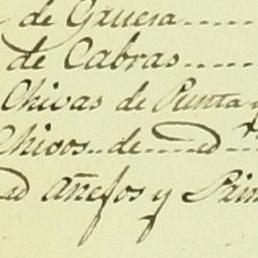 de Gaucia......
de Cabras......
Chivas de Punta y
Chivos..de....d....
d añejos y Prim